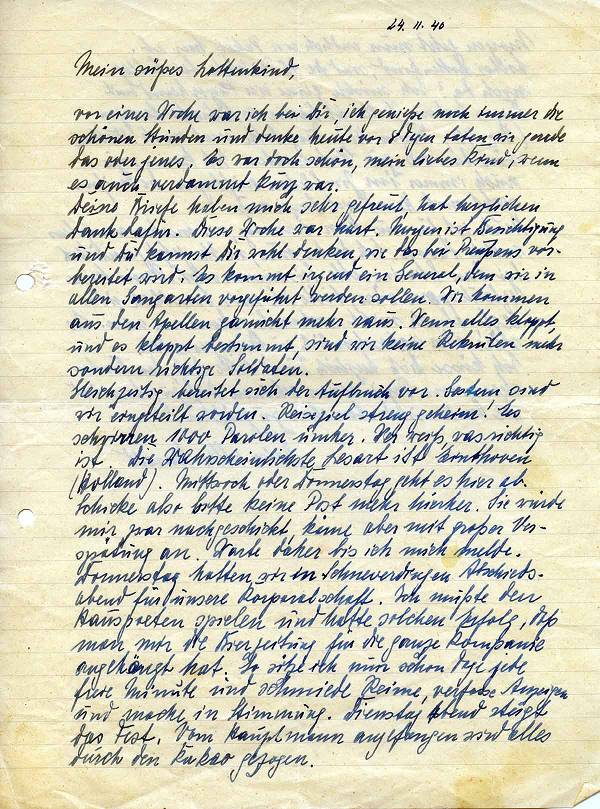 24. 11. 40
Mein süßes Lottenkind,
vor einer Woche war ich bei Dir, ich genieße noch immer die
schönen Stunden und denke heute vor 8 Tgen taten wir gerade
das oder jenes. Es war doch schön, mein liebes Kind, wenn
es auch verdammt kurz war.
Deine Briefe haben mich sehr gefreut, hat herzlichen
Dank dafür. Diese Woche war hart. Morgen ist Besichtigung
und Du kannst Dir wohl denken, wie das bei Preußens vor-
bereitet wird. Es kommt irgend ein General, dem wir in
allen Gangarten vorgeführt werden sollen. Wir kommen
aus den Apellen garnicht mehr raus. Wenn alles klappt,
und es klappt bestimmt, sind wir keine Rekruten mehr
sondern richtige Soldaten.
Gleichzeitig bereitet sich der Aufbruch vor. Gestern sind
wir eingeteilt worden. Reiseziel streng geheim! Es
schwirren 1000 Parolen umher. Wer weiß, was richtig
ist. Die Wahrscheinlichste Lesart ist
(Holland). Mittwoch oder Donnerstag geht es hier ab.
Schicke also bitte keine Post mehr hierher. Sie würde
mir zwar nachgeschickt, käme aber mit großer Ver-
spätung an. Warte daher bis ich mich melde.
Donnerstag hatten wir in Schneverdingen Abschieds-
abend für unsere Korporalschaft. Ich mußte den
Hauspoeten spielen und hatte solchen Erfolg, daß
man mir die Bierzeitung für die ganze Kompanie
angehängt hat. So sitze ich nun schon Tage jede
freie Minute und schmiede Reime, verfasse Anzeigen
und mache in Stimmung. Dienstag Abend steigt
das Fest. Vom Hauptmann angefangen wird alles
durch den Kakao gezogen.